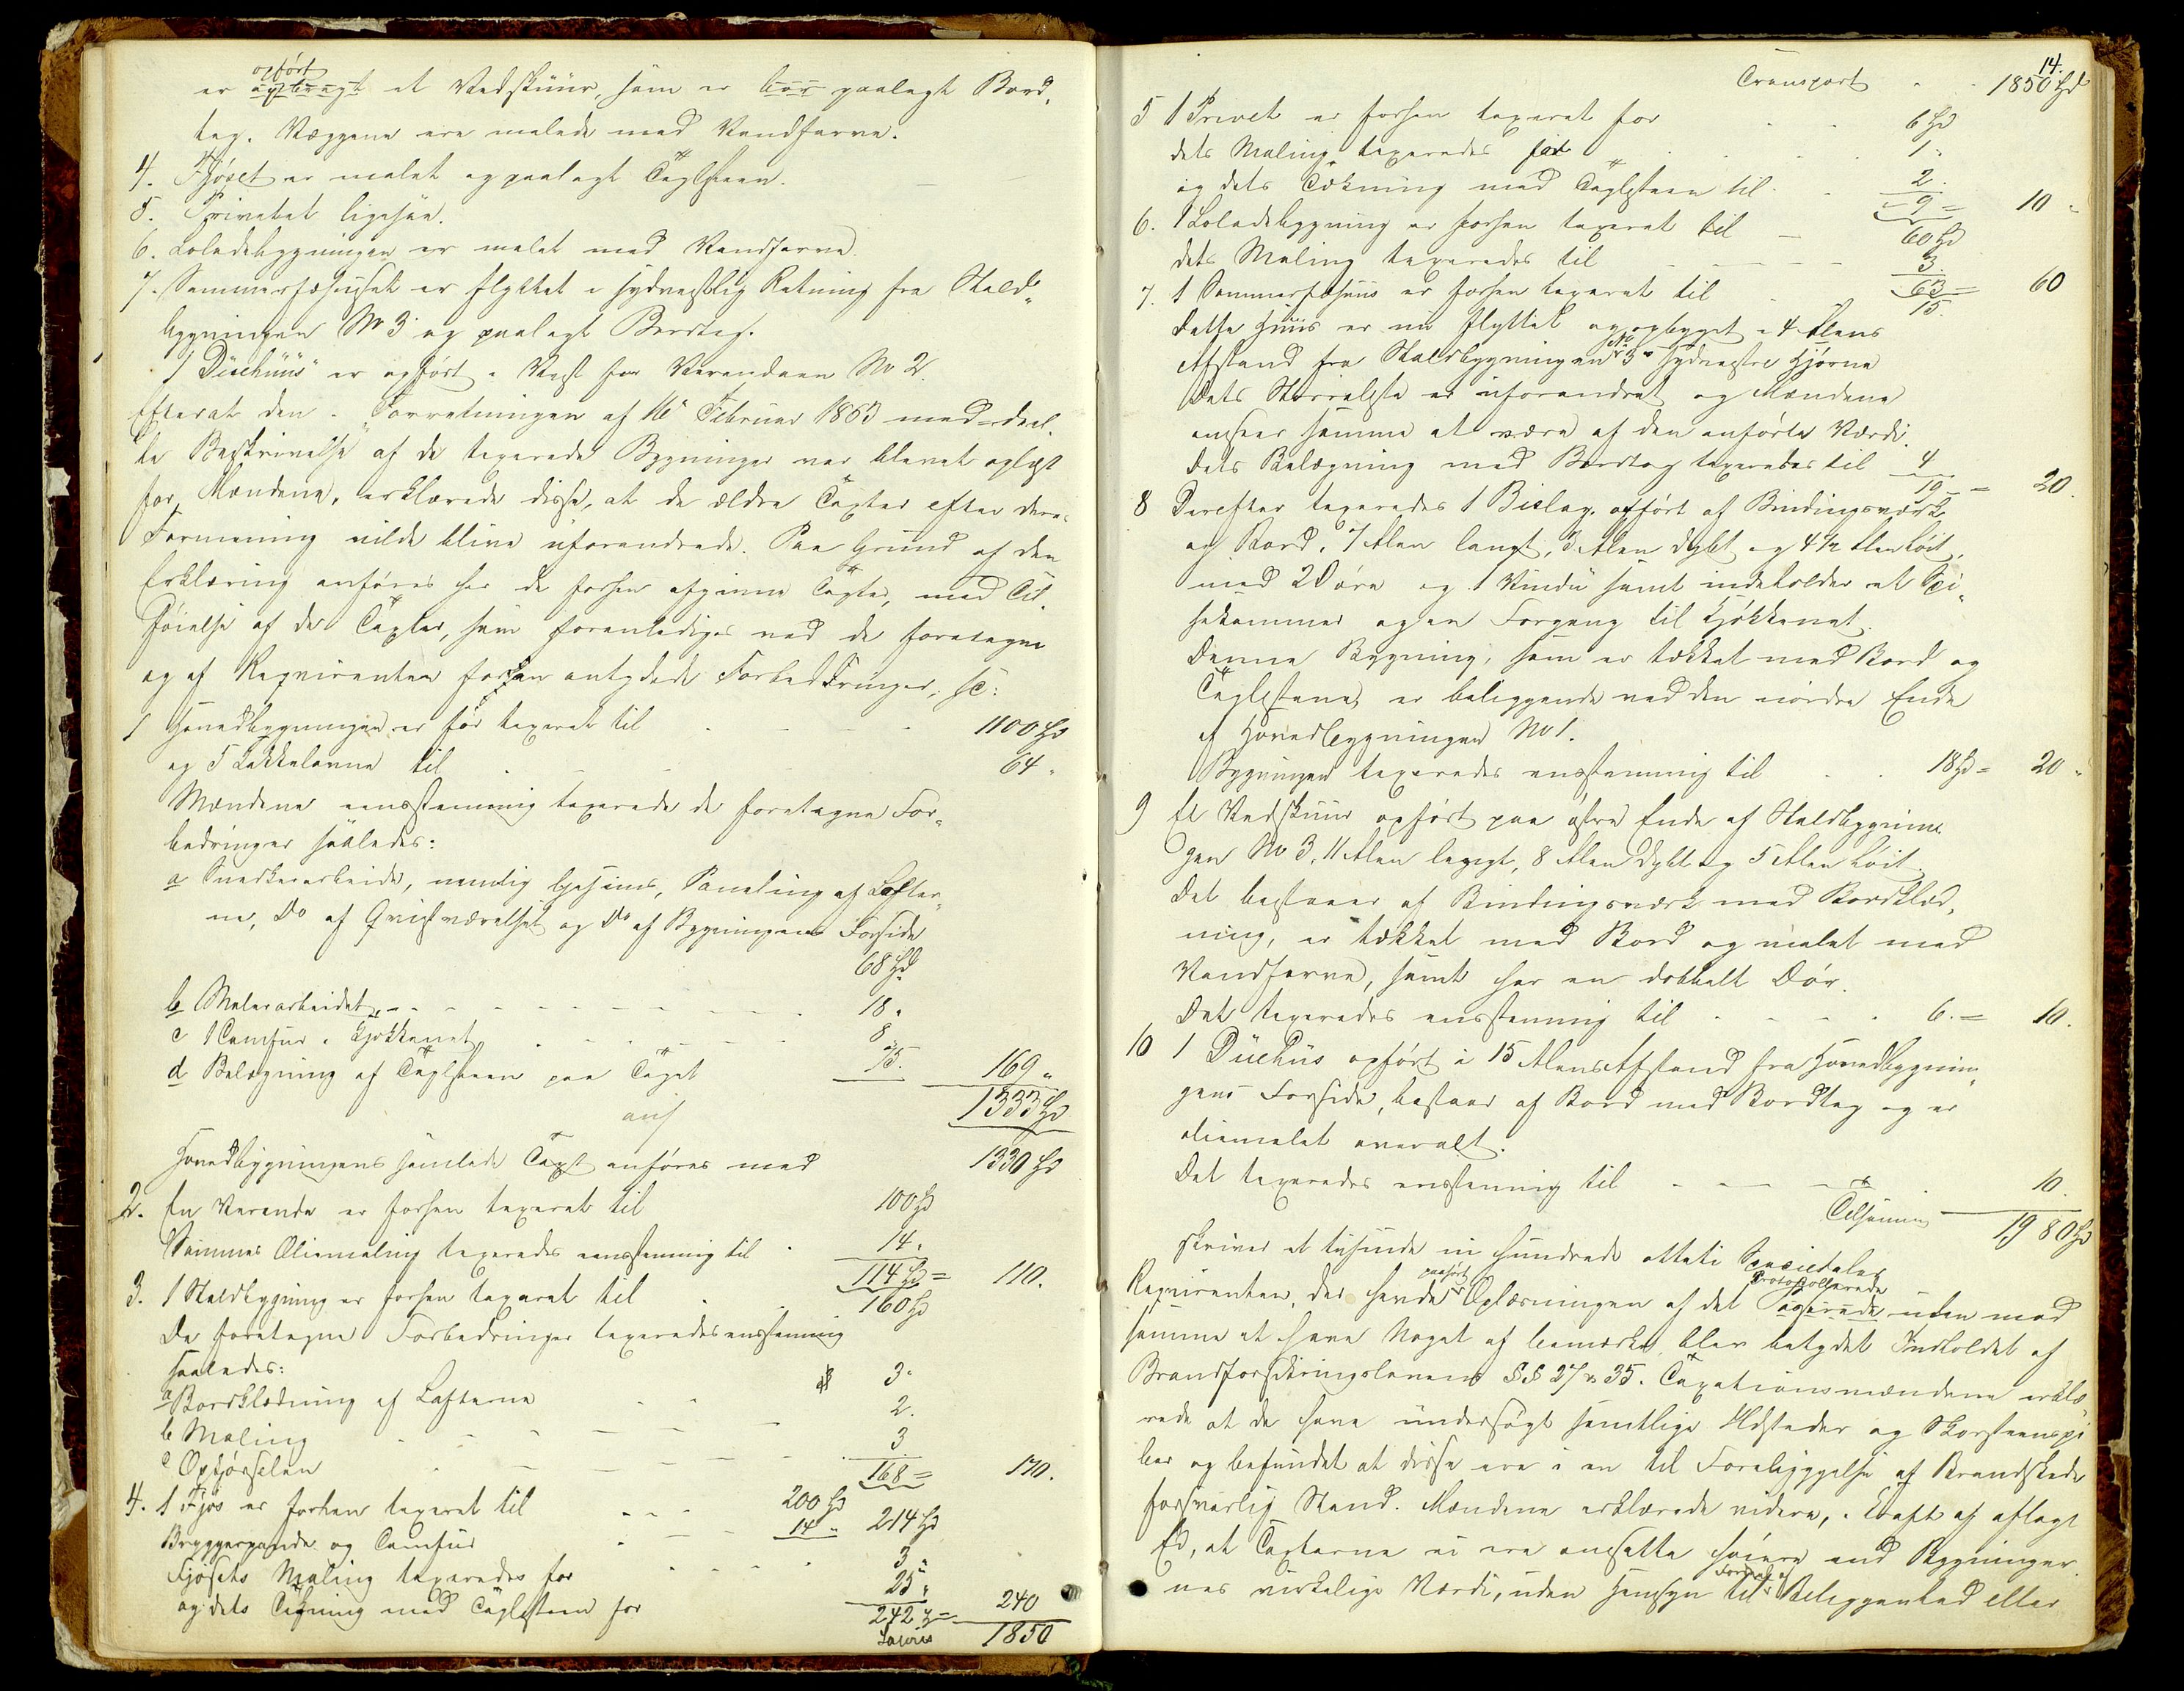 opført
er opbragt et Vedskuur, som er bør paalagt Bord-
tag. Væggene ere malede med Vandfarve.
4. Fjøset er malet og paalagt Taglsteen.
5. Privetet ligesaa.
6. Loladebygningen er malet med Vandfarve.
7. Sommerfæhuset er flyttet i sydvestlig Retning fra Stald-
bygningen No 3 og paalagt Bordtag.
1 Duehuus er opført i Vest for Verandaen No 2.
Efterat den i Forretningen af 16 Februar 1863 meddeel-
te Beskrivelse af de taxerede Bygninger var blevet oplæst
for Mændene, erklærede disse, at de ældre Taxter efter deres
Formening vilde blive uforandrede. Paa Grund af den
Erklæring anføres her de forhen afgivne Taxter, med Til-
føielse af de Taxter, som foranlediges ved de foretagne
og af Reqvirenten forhen antydede Forbedringer, sc:
1 Hovedbygningen er før taxeret til 1100 Spd
og 5 Kakkelovne til 64 "
Mændene eensstemmig taxerede de foretagne For-
bedringer saaledes:
a Snedkerarbeide, nemlig Gesims, Paneling af Lofter-
ne, Do af Qvistværelset og Do af Bygningens Forside
68 Spd
b Malerarbeidet 18 "
c 1 Comfur i Kjøkkenet 8
d Belægning af Taglsteen paa Taget 75. 169 "
1333 Spd
Hovedbygningens samlede Taxt anføres med 1330 Spd
2. En Veranda er forhen taxeret til 100 Spd
Sammes Oliemaling taxeredes eensstemmig til 14 "
114 Spd = 110.
3. 1 Staldbygning er forhen taxeret til 160 Spd
De foretagne Forbedringer taxeredes ensstemmig
saaledes:
a Bordklædning af Lofterne 3 "
b Maling 2.
c Opkjørselen 3
168 = 170.
4. 1 Fjøs er forhen taxeret til 200 Spd
Bryggerpande og Comfur 14 " 214 Spd
Fjøsets Maling taxeredes for 3 "
og dets Tækning med Taglsteen for 25 "
242 = 240
Lateris 1850
14.
Transport 1850 Spd
5 1 Privet er forhen taxeret for 6 Spd
dets Maling taxeredes for 1 "
og dets Tækning med Taglsteen til 2.
9 = 10 "
6. 1 Loladebygning er forhen taxeret til 60 Spd
dets Maling taxeredes til 3
63 = 60
7. 1 Sommerfæhuus er forhen taxeret til 15.
dette Huus er nu flyttet og opbygget i 4 Alens
Afstand fra Staldbygningen No 3s sydvestre Hjørne
Dets Størrelse er uforandret og Mændene
ansaae samme at være af den anførte Værdi.
dets Belægning med Bordtag taxeredes til 4
19 = 20.
8 Derefter taxeredes 1 Bislag, opført af Bindingsværk
og Bord, 7 Alen langt, 3 Alen dybt og 4 1/2 Alen høit,
med 2 Døre og 1 Vindu samt indeholder et Spi-
sekammer og en Forgang til Kjøkkenet.
Denne Bygning, som er tækket med Bord og
Taglsteen, er beliggende ved den nordre Ende
af Hovedbygningen No 1.
Bygningen taxeredes ensstemmig til 18 Spd = 20 "
9 Et Vedskuur opført paa østre Ende af Staldbygnin-
gen No 3, 11 Alen langt, 8 Alen dybt og 5 Alen høit.
Det bestaaer af Bindingsværk med Bordklæd-
ning, er tækket med Bord og malet med
Vandfarve, samt har en dobbelt Dør.
Det taxeredes ensstemmig til 6. = 10.
10 1 Duehus opført i 15 Alens Afstand fra Hovedbygnin-
gens Forside, bestaar af Bord med Bordtag og er
oliemalet overalt.
Det taxeredes ensstemmig til 10.
Tilsammen 1980 Spd
skriver et tusinde ni hundrede otteti Speciedaler
Reqvirenten, der havde paahørt Oplæsningen af det Protokollerede uden mod
samme at have Noget at bemærke, blev betydet Indholdet af
Brandforsikringslovens §§ 27 & 35. Taxationsmændene erklæ-
rede at de have undersøgt samtlige Ildsteder og Skorsteenspi-
ber og befundet at disse ere i en til Forebyggelse af Brandskade
forsvarlig Stand. Mændene erklærede videre, i Kraft af aflagt
Ed, at Taxterne ei ere ansatte høiere end Bygninger-
nes virkelige Værdi, uden Hensyn til Beliggenhed eller